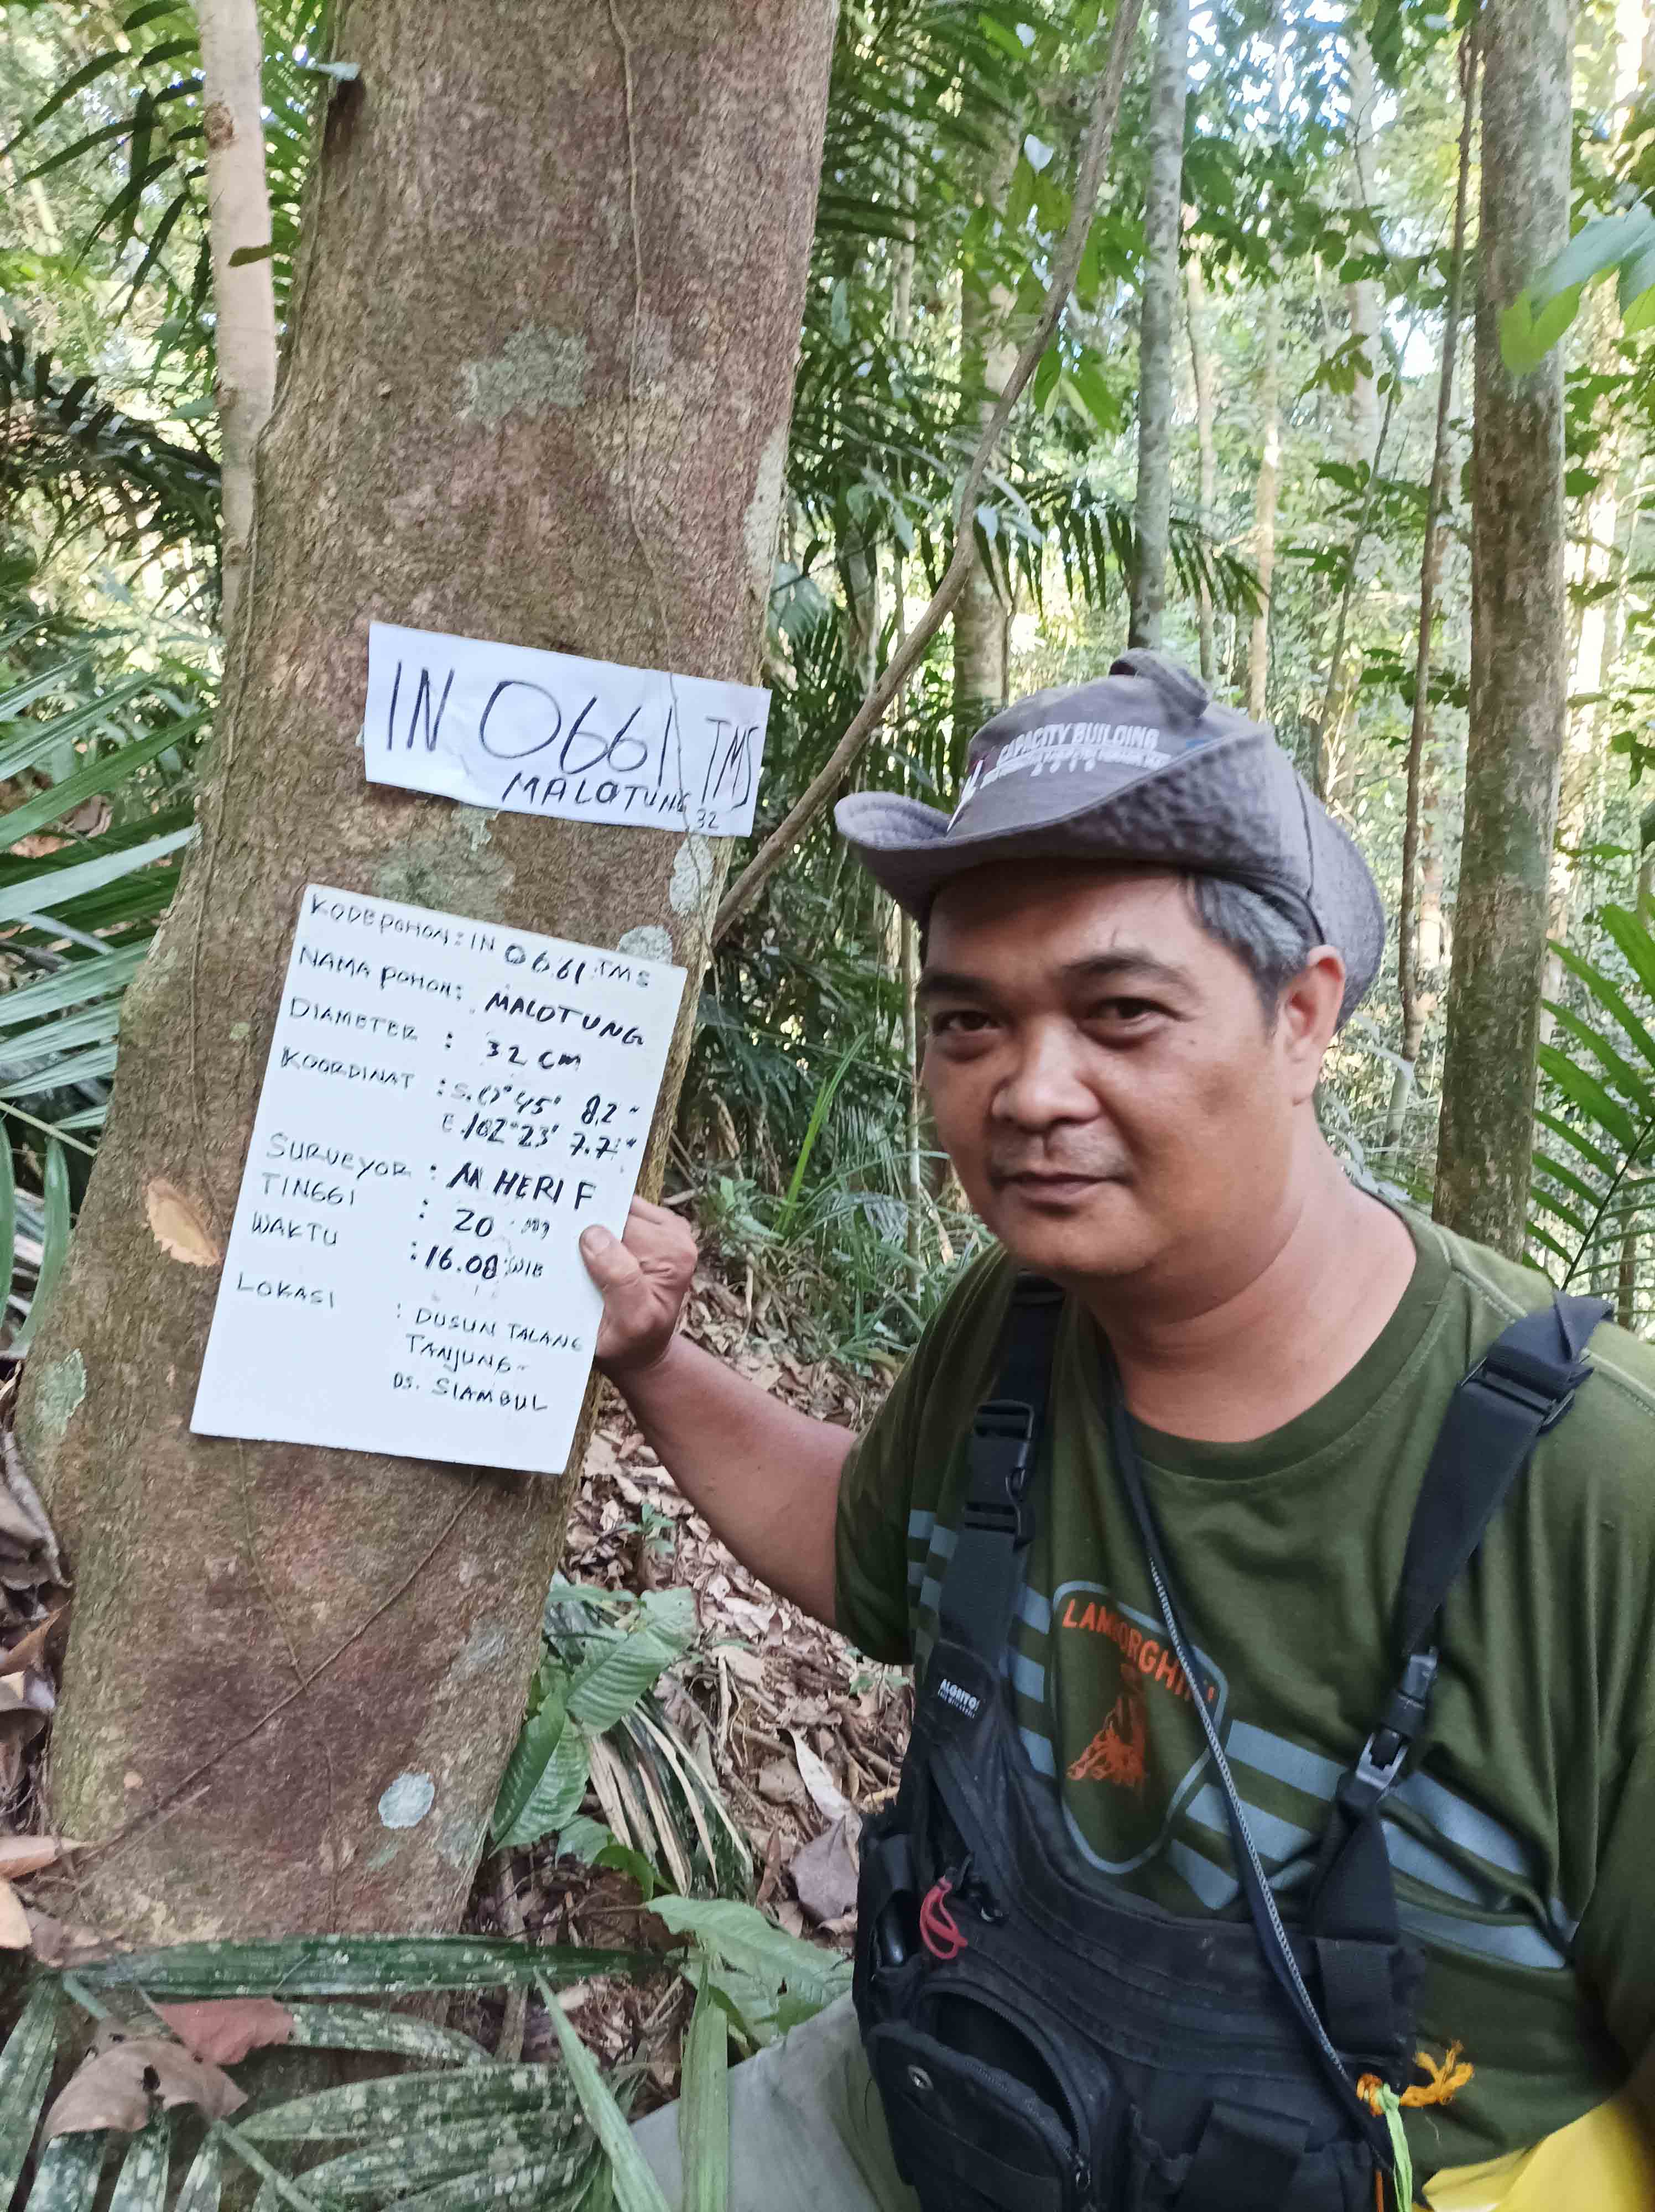 IN 0661 TMS
MALOTUNG 32
KODE POHON : IN 0661 TMS
NAMA POHON : MALOTUNG
DIAMETER : 32 CM
KOORDINAT : S. 0° 45' 8,2"
E. 102° 23' 7.7"
SURVEYOR : M HERI F
TINGGI : 20
WAKTU : 16.08 WIB
LOKASI : DUSUN TALANG
TANJUNG -
DS. SIAMBUL
CAPACITY BUILDING
2018
LAMBORGHINI